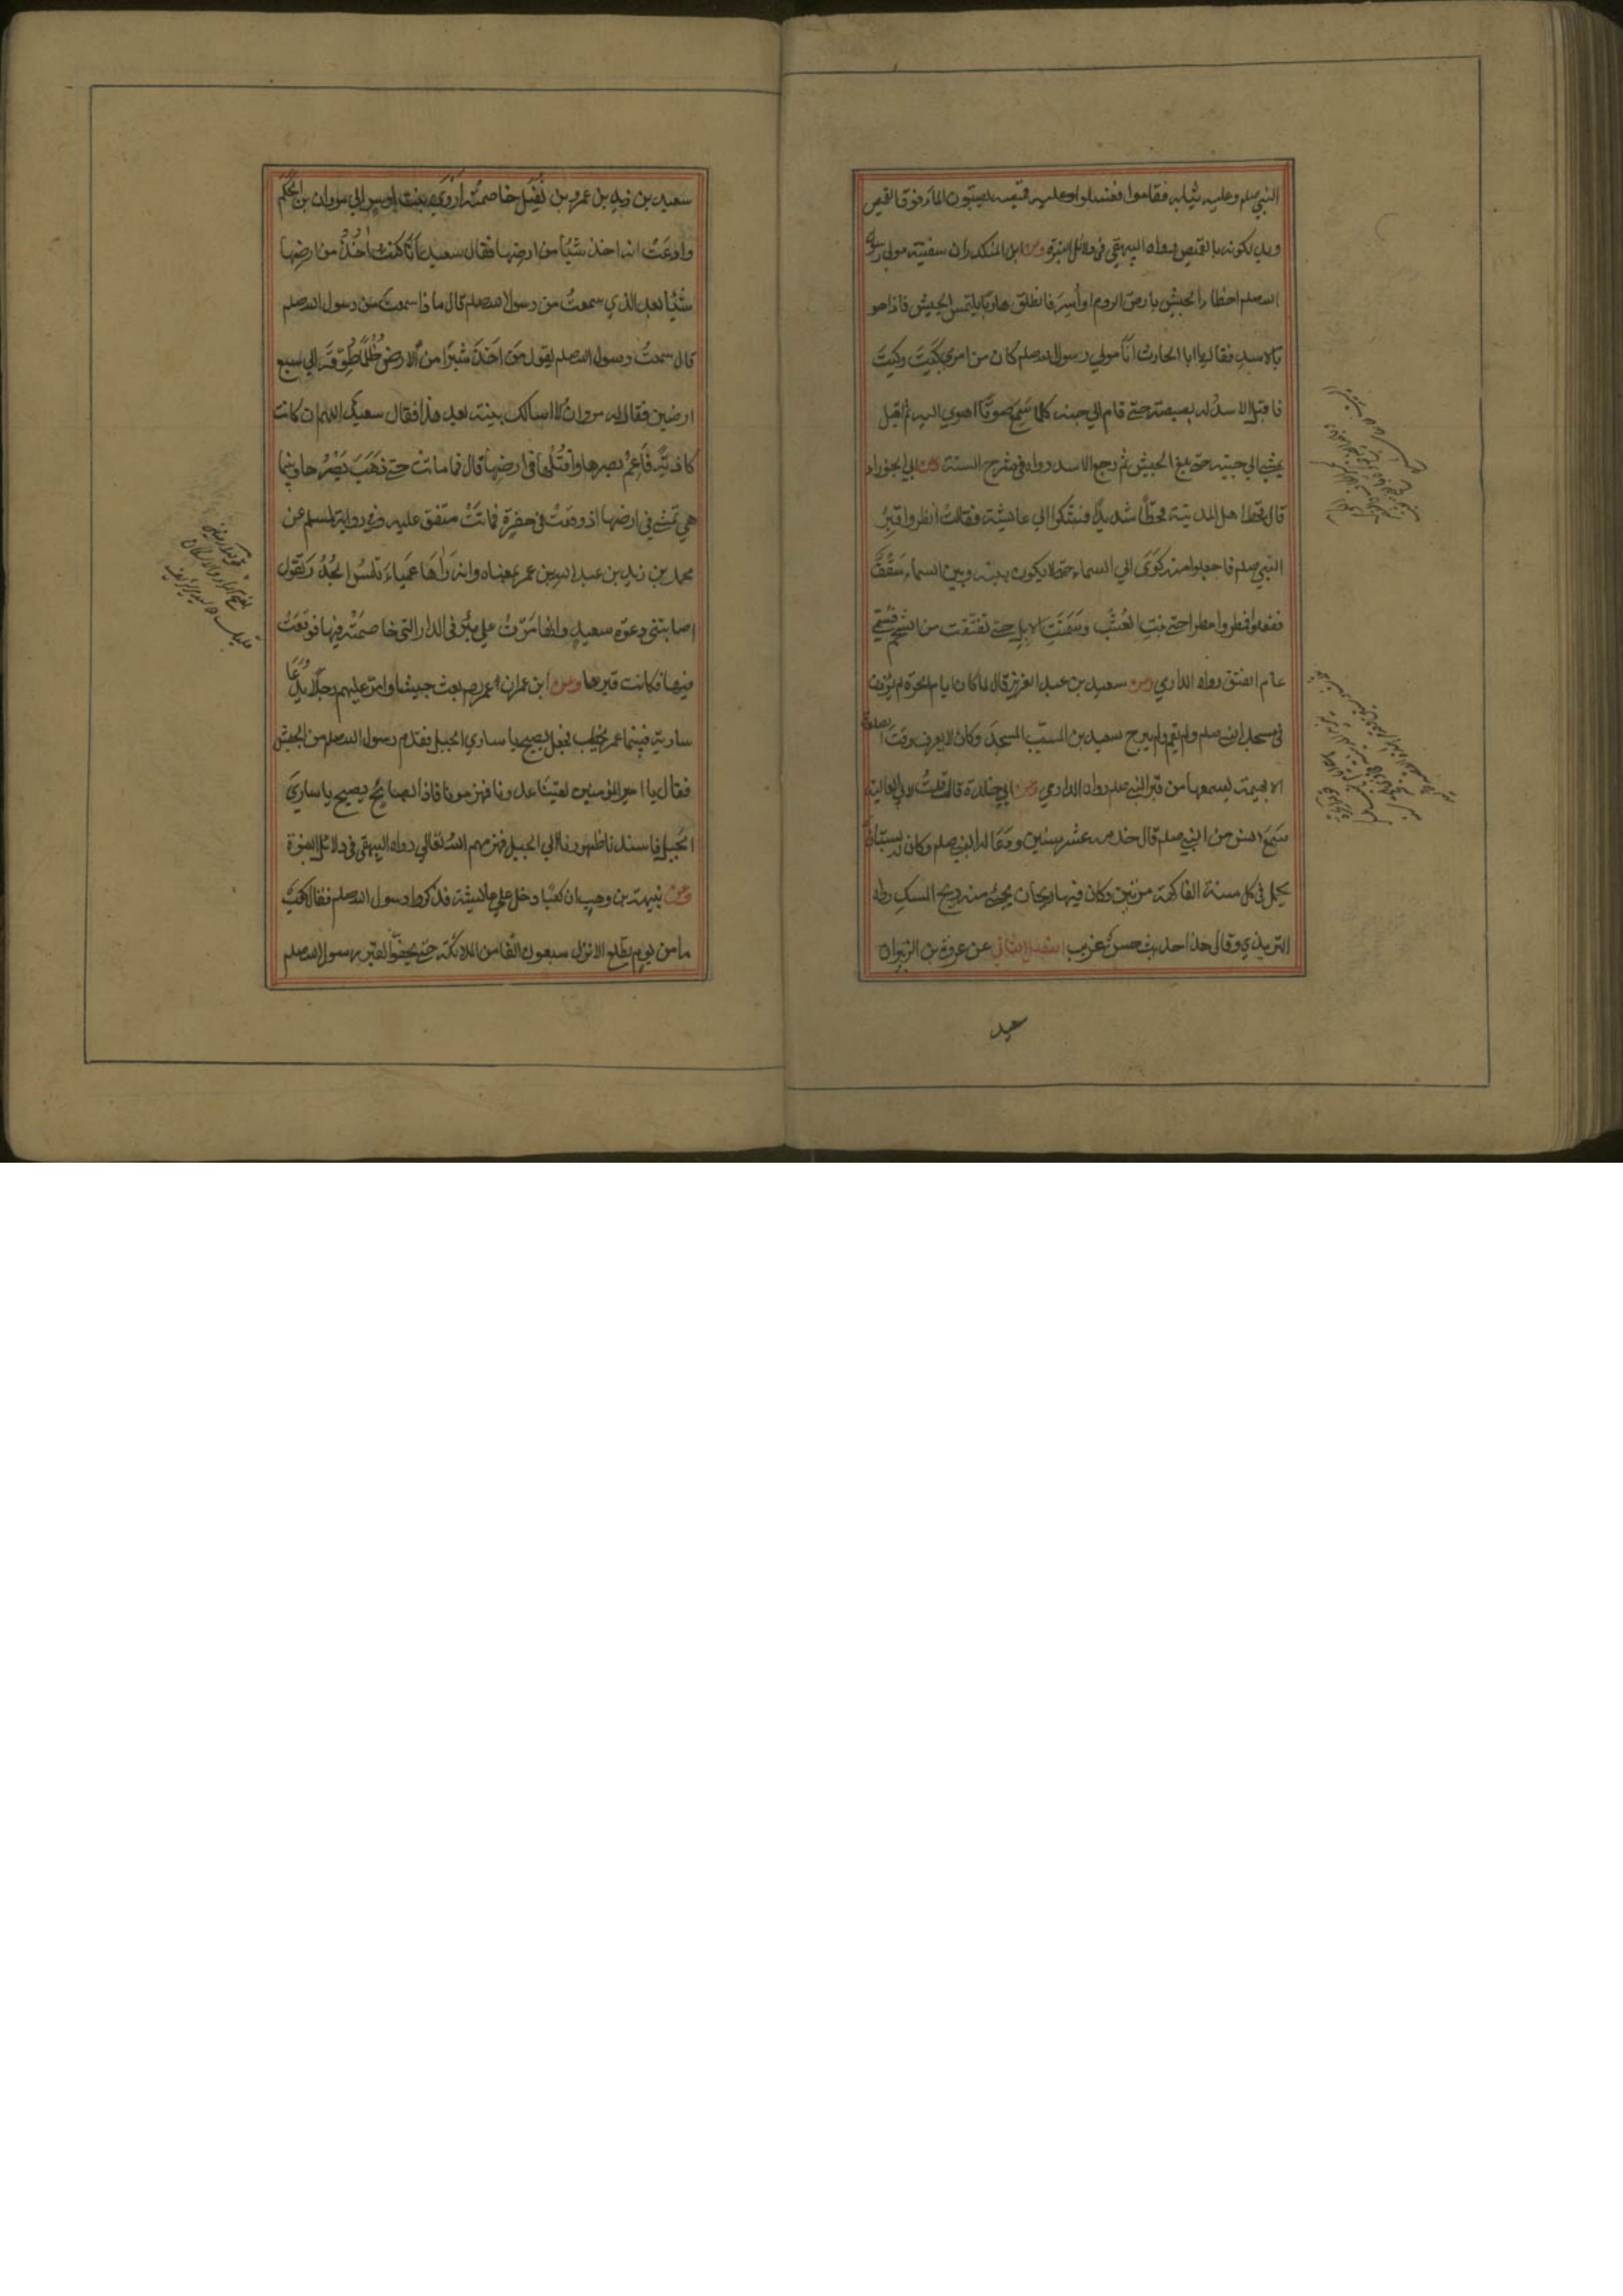 النبي صلعم وعليه ثيابه فقاموا فغسلوه وعليه قميصه يصبون الماء فوق القميص
ويدلكونه بالقميص رواه البيهقي في دلائل النبوة وعن ابن المنكدر ان سفينة مولى رسول
الله صلعم اخطا الجيش بارض الروم او أُسِرَ فانطلق هاربا يلتمس الجيش فاذا هو
بالاسد فقال يا ابا الحارث انا مولى رسول الله صلعم كان من امري كَيْتَ وكَيْتَ
فاقبل الاسد له بصبصة حتى قام الي جنبه كلما سَمِعَ صوتًا اهوي اليه ثم اقبل
يمشي الي جنبه حتى بلغ الجيش ثم رجع الاسد رواه في شرح السنة وعن ابي الجوزاء
قال قحط اهل المدينة قحطًا شديدًا فشكوا الي عائشة فقالت أنظروا قبرَ
النبي صلعم فاجعلوا منه كوَىً الي السماء حتى لا يكون بينه وبين السماء سَقْفٌ
ففعلوا فمطروا مطرا حتى نبت العُشْب وسَمِنَتِ الابل حتى تفتقت من الشحم فسمي
عام الفتق رواه الدارمي وعن سعيد بن عبد العزيز قال لما كان ايام الحرة لم يُؤذن
في مسجد النبي صلعم ولم يقم ولم يبرح سعيد بن المسيّب المسجدَ وكان لا يعرف وقت الصلوة
الا بهمهمة يسمعها من قبر النبي صلعم رواه الدارمي وعن ابي خلدة قال قلتُ لابي العالية
سَمِعَ انس من النبي صلعم قال خدمه عشر سنين ودَعَا له النبي صلعم وكان له بستان
يحمل في كل سنة الفاكهة مرتين وكان فيها ريحان يجيء منه ريح المسك رواه
الترمذي وقال هذا حديث حسن غريب الفصل الثالث عن عروة بن الزبير ان
سعيد
سعيد بن زيد بن عمرو بن نُفَيْل خاصمتْه أرْوَى بنت اوس الي مروان بن الحكم
وادعَتْ انه اخذ شيئًا من ارضها فقال سعيد أنا كنت اٰخُذُ من ارضها
شيئًا بعد الذي سمعتُ من رسول الله صلعم قال ماذا سمعت من رسول الله صلعم
قال سمعتُ رسول الله صلعم يقول مَن اَخَذَ شِبْرًا من الارض ظُلْمًا طُوِّقَه الي سبع
ارضين فقال له مروان لا اسالك بينة بعد هذا فقال سعيد اللهم ان كانت
كاذبةً فَاَعْمِ بصرها واقتُلْها في ارضها قال فما ماتت حتى ذَهَبَ بَصَرُها وبينما
هي تمشي في ارضها اذ وقعتْ في حفرةٍ فماتتْ متفق عليه وفي رواية لمسلم عن
محمد بن زيد بن عبد الله بن عمر بمعناه وانه رَاٰهَا عَمْيَاءَ تلتمسُ الجُدُرَ وتقول
اصابتني دعوة سعيد وانها مَرّتْ علي بئر في الدار التي خاصمتْه فيها فوقعَتْ
فيها فكانت قبرها وعن ابن عمر ان عمر بعث جيشا وامّر عليهم رجلًا يدعَا
سارية فبينما عمر يخطب فجعل يصيح يا ساري الجبل فقدم رسول الله صلعم من الجيش
فقال يا امير المؤمنين لقينا عدونا فهزمونا فاذا بصائحٍ يصيح يا ساريَ
الجبل فاسندنا ظهورنا الي الجبل فهزمهم الله تعالى رواه البيهقي في دلائل النبوة
وعن نبيهة بن وهب ان كعبًا دخل علي عائشة فذكروا رسول الله صلعم فقال كعب
ما من يوم يطلع الا نزل سبعون الفا من الملائكة حتى يحفّوا بقبر رسول الله صلعم